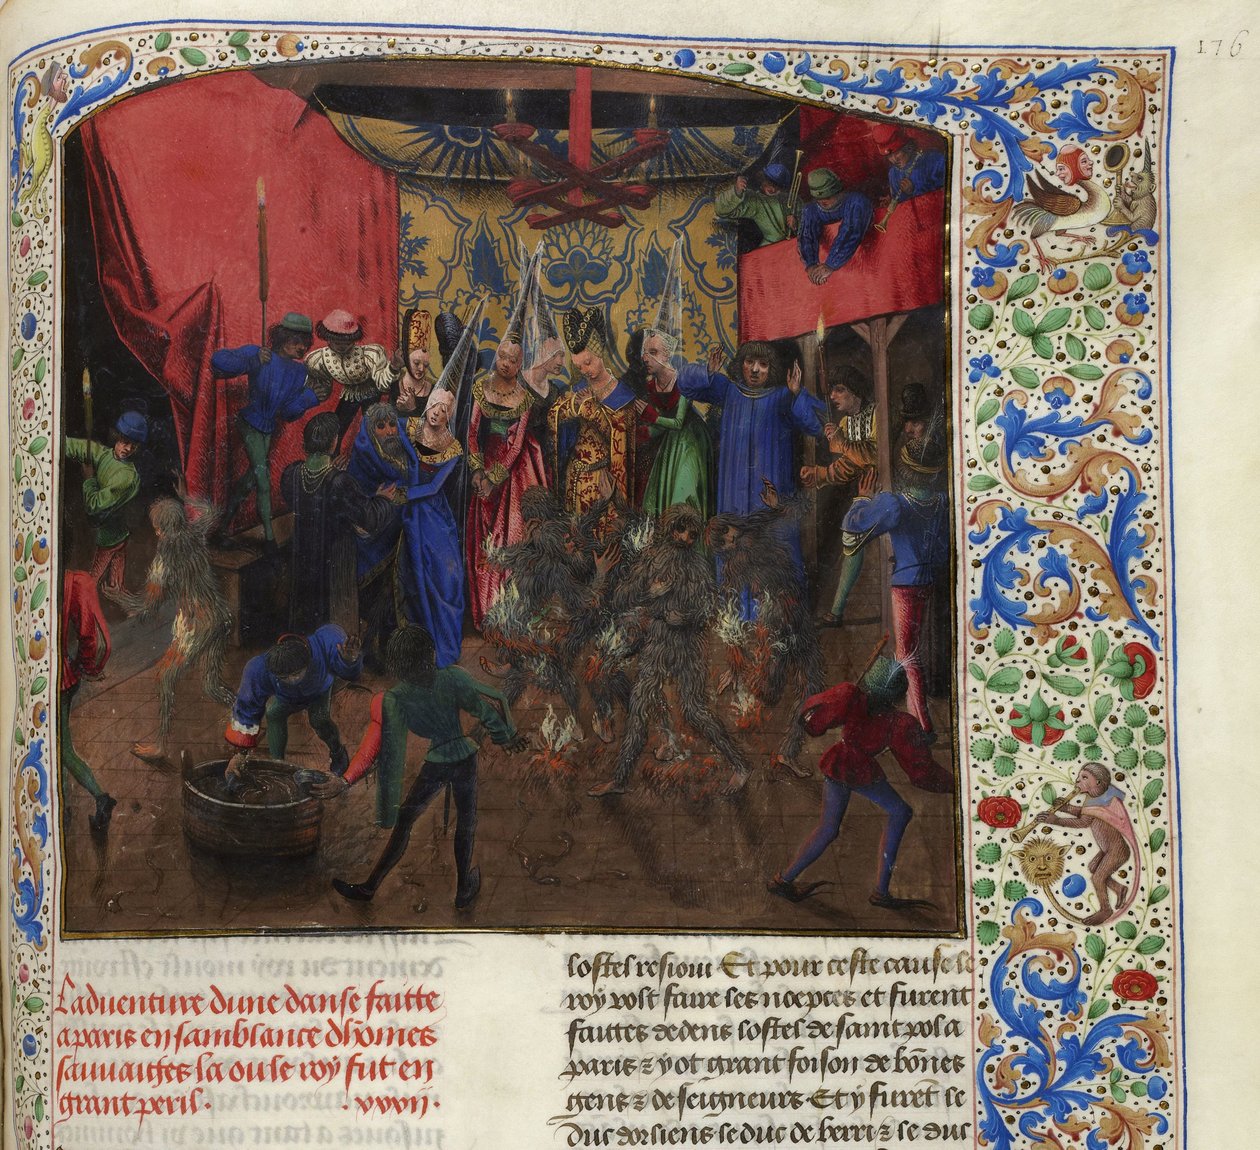 176
Laduenture dune danse faitte
a paris en samblance dhōmes
sauuaiges la ou le roy fut en
grant peril. .xxxij.
lostel resioui Et pour ceste cause le
roy volt faire les noepces et furent
faittes dedens lostel de saint pol a
paris ⁊ y ot grant foison de bōnes
gens ⁊ de seigneurs. Et y furēt le
duc dorliens le duc de berri ⁊ le duc